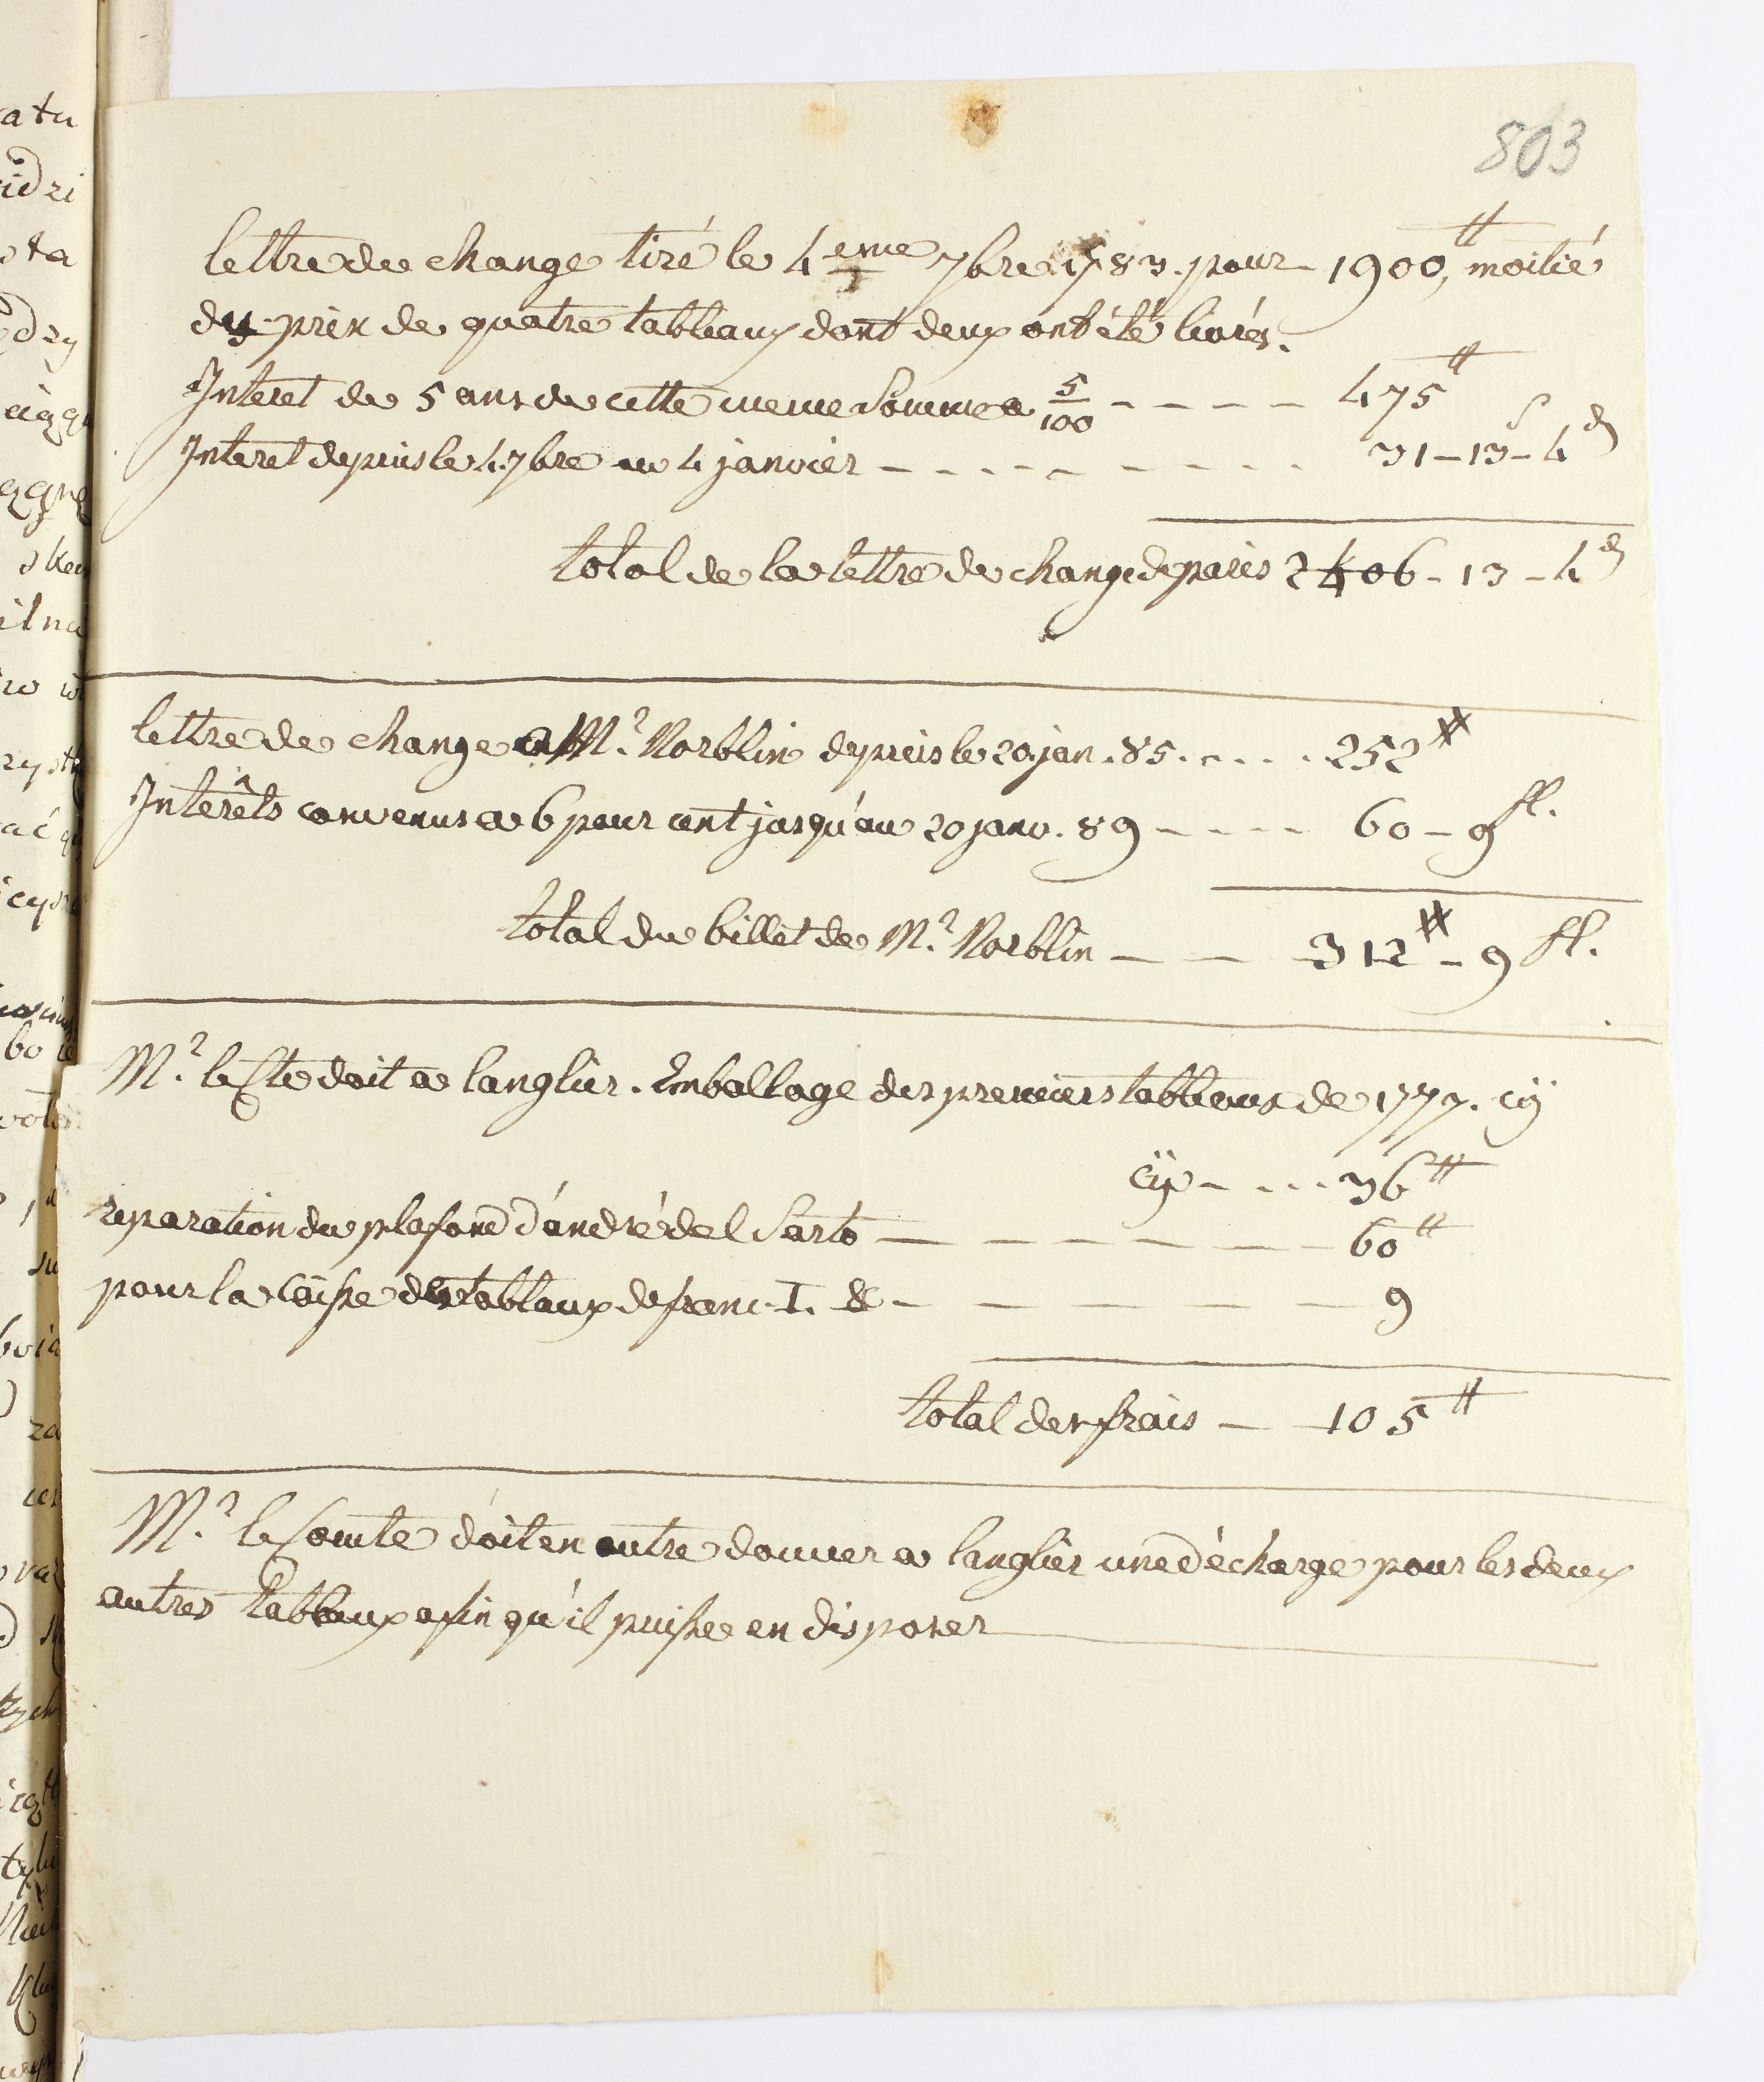 803
lettre de change tiré le 4 eme 7bre 1783. pour 1900,₶ moitié
du prix de quatre tableaux dont deux ont été livrés.
Interet de 5 ans de cette meme Somme a 5/100 - - - - - 475₶
Interet depuis le 4. 7bre au 4 janvier - - - - - - - - - 31 - 13 s - 4 d
total de la lettre de change de paris 2406 - 13 - 4 d
lettre de change a Mr. Norblin depuis le 20. jan. 85. - - - . 252 #
Interêts convenus a 6 pour cent jusqu'au 20 janv. 89 - - - - 60 - 9 fl.
total du billet de Mr. Norblin - - - 312 # - 9 fl.
Mr. le Cte doit a langlier. Emballage des premiers tableaux de 1777. cÿ
cÿ - . . . 36₶
reparation du plafond d'andré del Sarto - - - - - - 60₶
pour la Caisse des tableaux de franc. I. & - - - - - - 9
total des frais - 105₶
Mr. le Comte doit en outre donner a langlier une décharge pour les deux
autres tableaux afin qu'il puisse en disposer